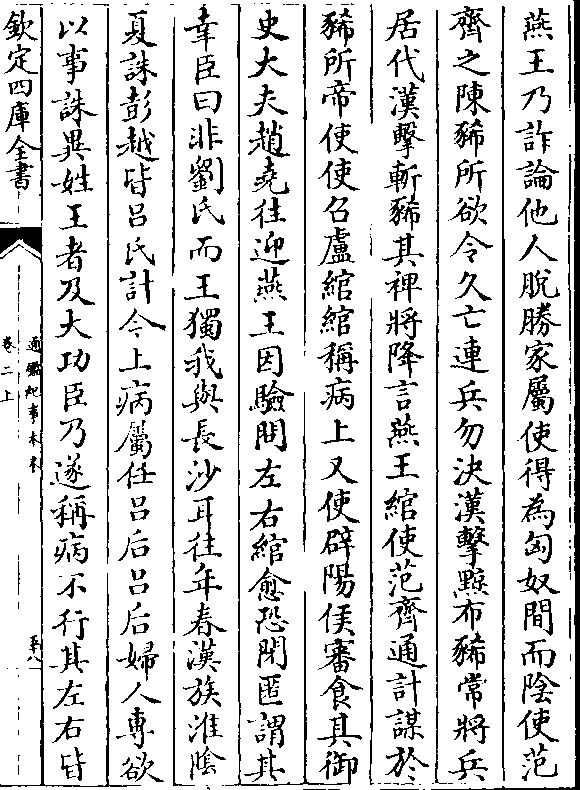 燕王乃詐論他人脫勝家屬使得為匈奴間而陰使范
齊之陳豨所欲令久亡連兵勿決漢擊黥布豨常將兵
居代漢擊斬豨其裨將降言燕王綰使范齊通計謀於
豨所帝使使召盧綰綰稱病上又使辟陽侯審食其御
史大夫趙堯往迎燕王因驗問左右綰愈恐閉匿謂其
幸臣曰非劉氏而王獨我與長沙耳往年春漢族淮陰
夏誅彭越皆呂氏計今上病屬任呂后呂后婦人専欲
以事誅異姓王者及大功臣乃遂稱病不行其左右皆
欽定四庫全書
通鑑紀事本末
卷二上